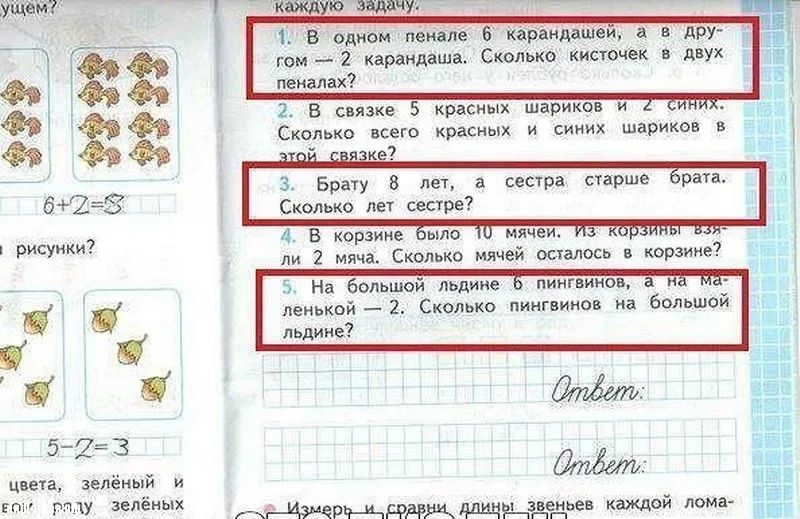 ущем?
6+2=8
рисунки?
5-2=3
цвета, зелёный и
зелёных
каждую задачу.
1. В одном пенале 6 карандашей, а в дру-
гом — 2 карандаша. Сколько кисточек в двух
пеналах?
2. В связке 5 красных шариков и 2 синих.
Сколько всего красных и синих шариков в
этой связке?
3. Брату 8 лет, а сестра старше брата.
Сколько лет сестре?
4. В корзине было 10 мячей. Из корзины взя-
ли 2 мяча. Сколько мячей осталось в корзине?
5. На большой льдине 6 пингвинов, а на ма-
ленькой — 2. Сколько пингвинов на большой
льдине?
Ответ:
Ответ:
Измерь и сравни длины звеньев каждой лома-